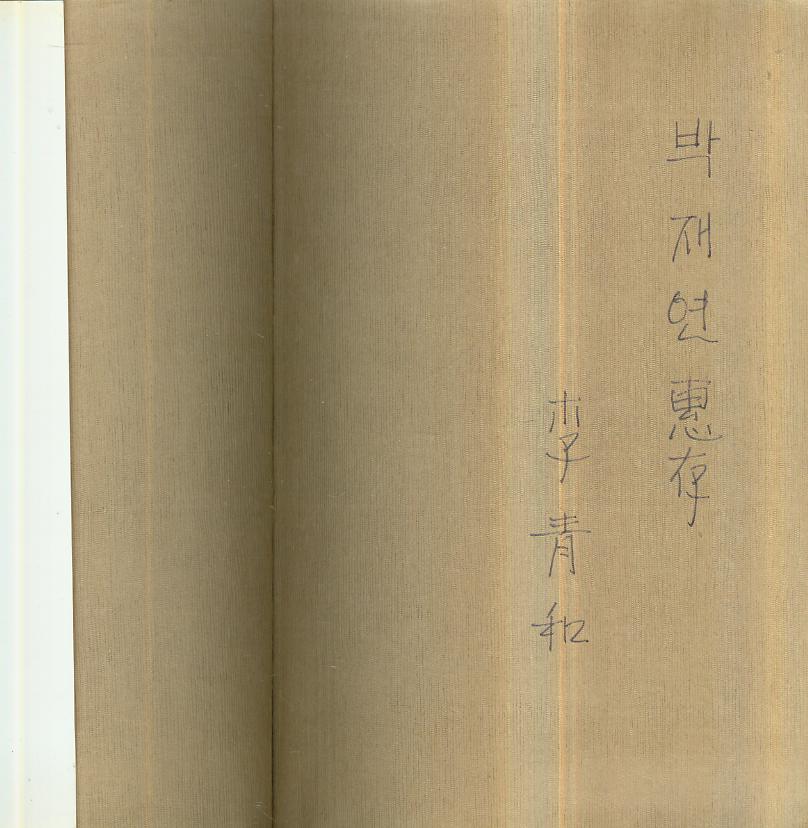 박재연惠存
李青和